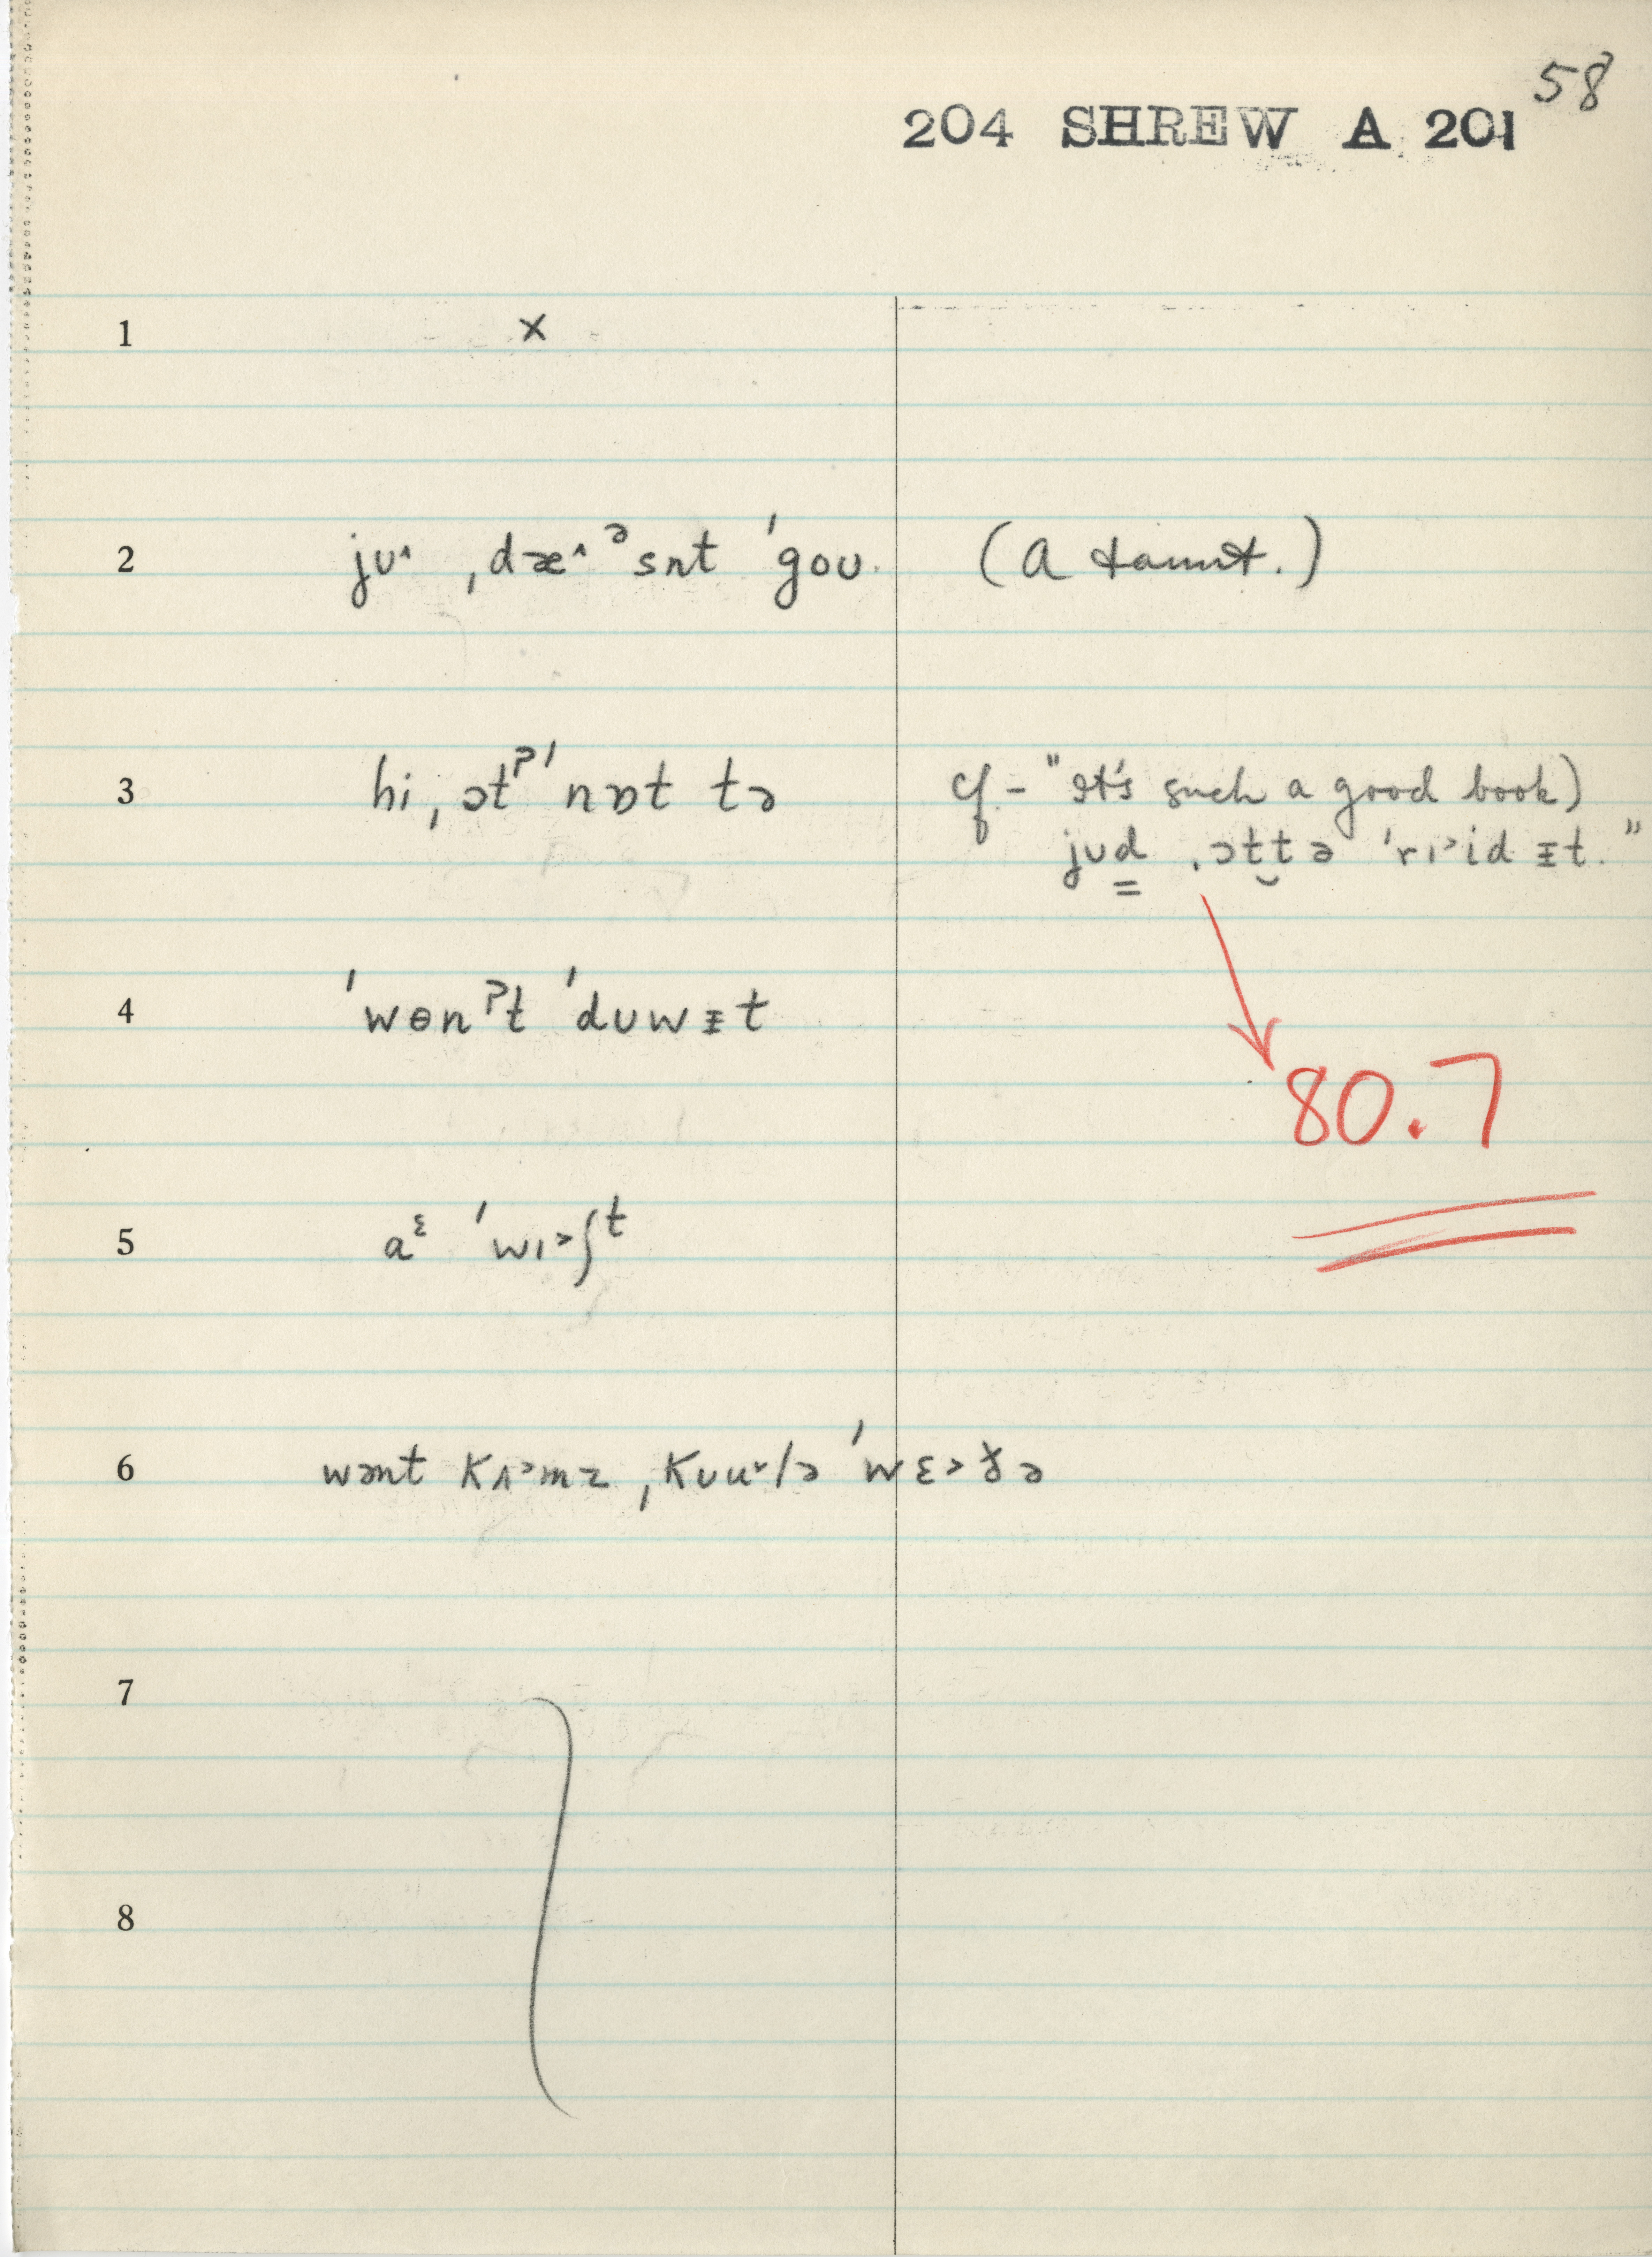 58
204 SHREW A 201
1 x
2 jʊ˄ ˌdæ˄ᵊsn̩t ˈgoʊ. (A taunt.)
3 hi ˌɔtˀ ˈnɒt tə cf - "It's such a good book)
jʊd ˌɔttə ˈrɪ˃id ᵻt."
4 ˈwɵnˀt ˈdʊwᵻt
80.7
5 aᵋ ˈwɪ˃ʃᵗ
6 wənt kʌ˃mz ˌkʊu˅lə ˈwɛ˃ðə
7
8